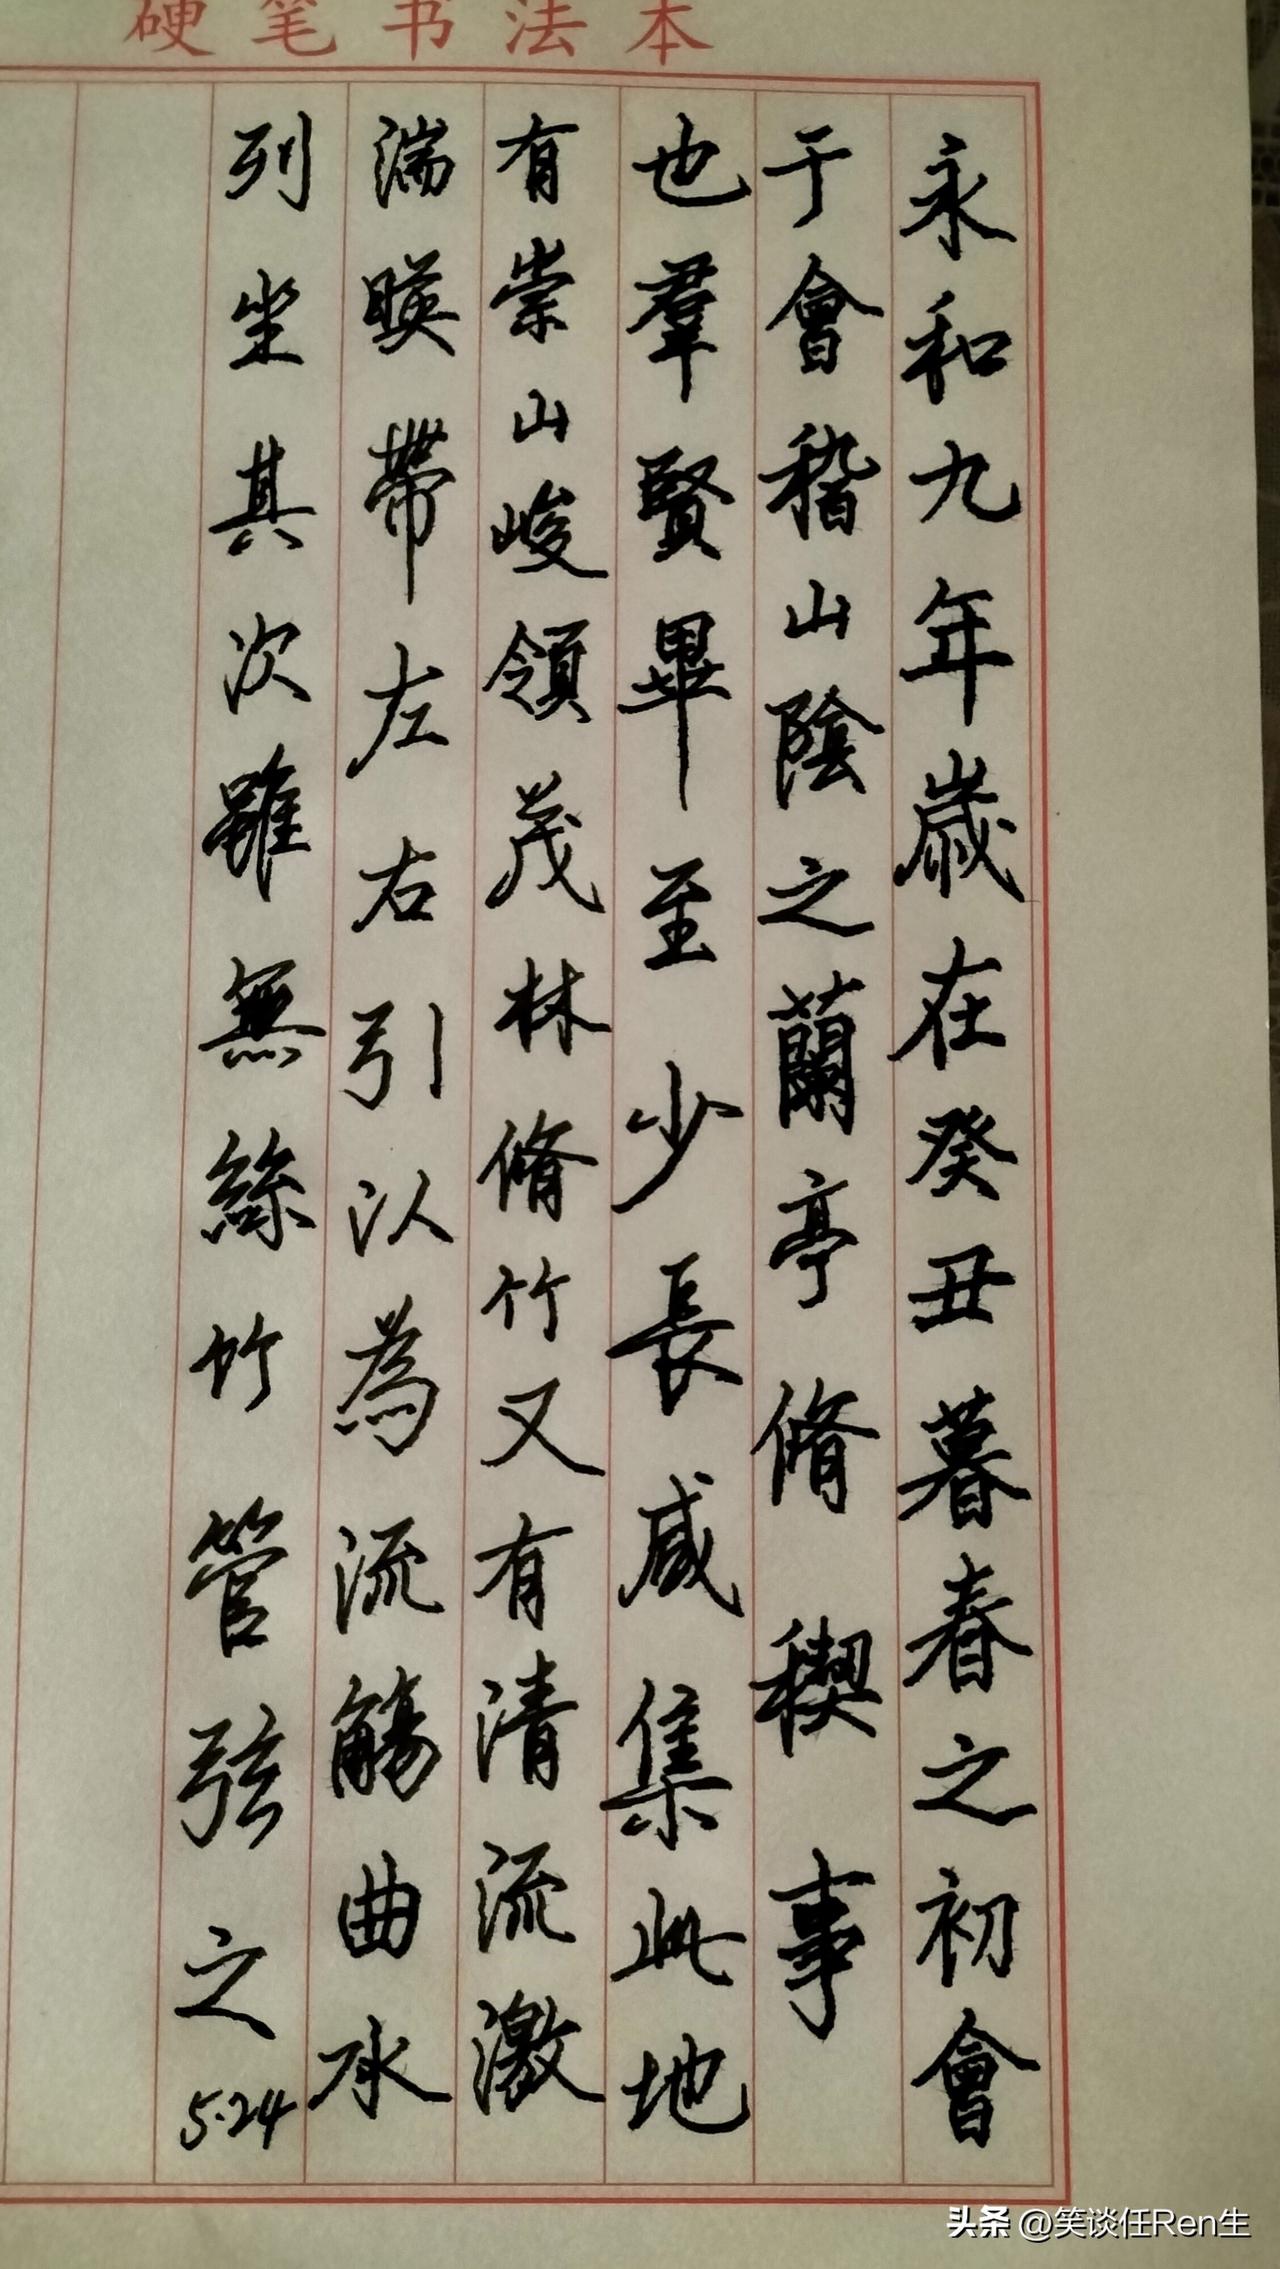 硬笔书法本
永和九年歲在癸丑暮春之初會
于會稽山陰之蘭亭脩稧事
也羣賢畢至少長咸集此地
有崇山峻領茂林脩竹又有清流激
湍暎帶左右引以為流觴曲水
列坐其次雖無絲竹管弦之
5·24
头条 @笑谈任Ren生